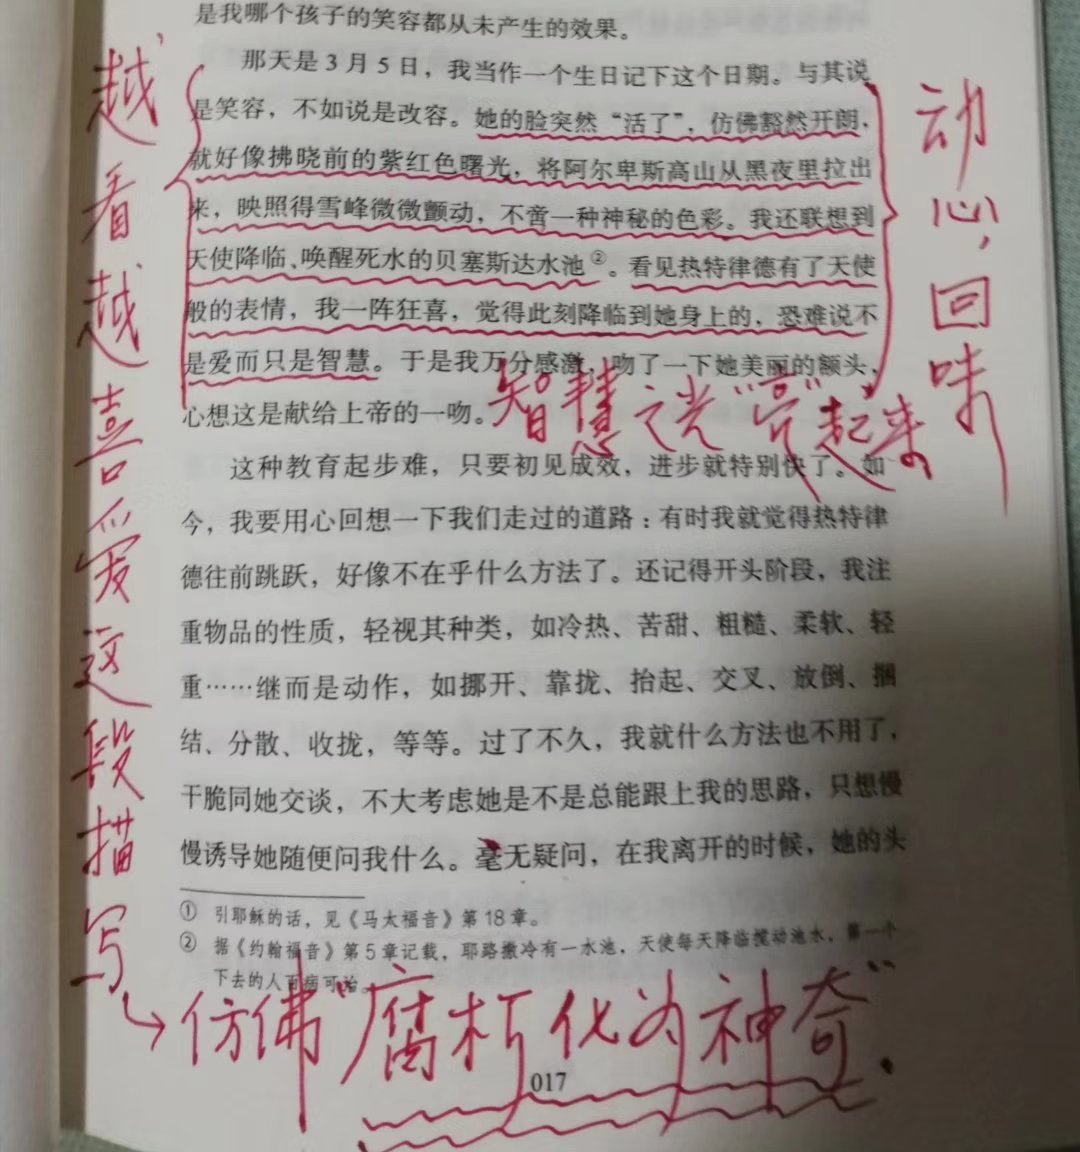 是我哪个孩子的笑容都从未产生的效果。
那天是3月5日，我当作一个生日记下这个日期。与其说
是笑容，不如说是改容。她的脸突然“活了”，仿佛豁然开朗，
就好像拂晓前的紫红色曙光，将阿尔卑斯高山从黑夜里拉出
来，映照得雪峰微微颤动，不啻一种神秘的色彩。我还联想到
天使降临、唤醒死水的贝塞斯达水池②。看见热特律德有了天使
般的表情，我一阵狂喜，觉得此刻降临到她身上的，恐难说不
是爱而只是智慧。于是我万分感激，吻了一下她美丽的额头，
心想这是献给上帝的一吻。
智慧之光“亮”起来
这种教育起步难，只要初见成效，进步就特别快了。如
今，我要用心回想一下我们走过的道路：有时我就觉得热特律
德往前跳跃，好像不在乎什么方法了。还记得开头阶段，我注
重物品的性质，轻视其种类，如冷热、苦甜、粗糙、柔软、轻
重……继而是动作，如挪开、靠拢、抬起、交叉、放倒、捆
结、分散、收拢，等等。过了不久，我就什么方法也不用了，
干脆同她交谈，不大考虑她是不是总能跟上我的思路，只想慢
慢诱导她随便问我什么。毫无疑问，在我离开的时候，她的头
① 引耶稣的话，见《马太福音》第18章。
② 据《约翰福音》第5章记载，耶路撒冷有一水池，天使每天降临搅动池水，第一个
下去的人百病可治。
017
动心，回味
越看越喜爱这段描写
仿佛“腐朽化为神奇”.